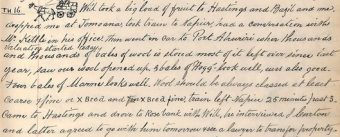 TH 16. Will took a big load of fruit to Hastings and Basil and me
at Tomoana, took train to Napier had a conversation with
Mr Kill to in his office. Then went on car to Port Ahuriri where thousands
Valuation started today.
and thousands of bales of wool is stored most of it left over since last
year, saw our wool opened up. 3 bales of Hogg look well, ewe also good.
Four bales of Marmu looks well. Wool should be always classed at least
coarse & fine or x Bred and x Bred fine, train left Napier 25 minutes past 3.
Came to Hastings and drove to Rosebank with Will, he interviewed J
and latter agreed to go with him tomorrow see a lawyer to transfer property.